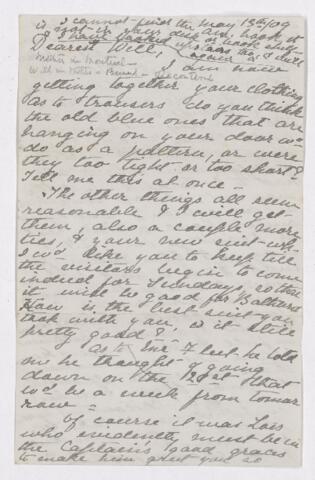 I cannot find the May 13th/09
it is not in your duc an. book it
& I have looked upstairs too & still
Dearest Will,
Mother in Montreal -
Will in Metis -
I am now
getting together your clothing
as to trousers do you think
the old blue ones that are
hanging on your door wd
do as a pattern, or were
they too tight or too short?
Tell me this at once -
The other things all seem
reasonable & I will get
them, also a couple more
ties, & your new suit wh
I wd like you to keep till
the visitors begin to come
indeed for Sundays, so then
it will be good for
How is the best suit you
took with you, is it still
pretty good?
As to Mr F but he told
me he thought of going
down on the 21st that
wd be a week from tomor
row -
Of course it was Lois
who evidently must be in
the Captain's good graces
to make him grant you so